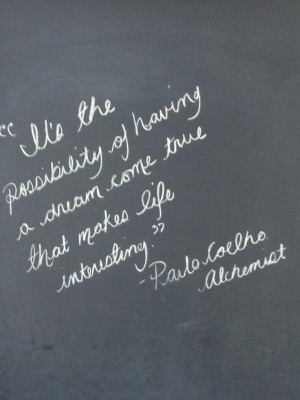 “It's the
possibility of having
a dream come true
that makes life
interesting.”
- Paulo Coelho
Alchemist